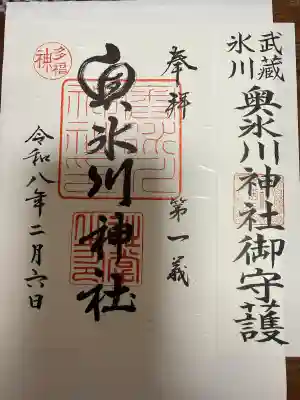 武蔵
氷川
奥氷川神社御守護
奉拝
第一義
奥氷川神社
令和八年二月六日